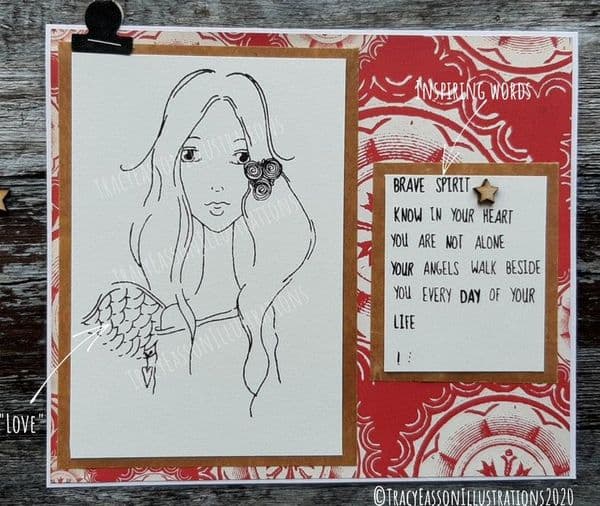 INSPIRING WORDS
BRAVE SPIRIT
KNOW IN YOUR HEART
YOU ARE NOT ALONE
YOUR ANGELS WALK BESIDE
YOU EVERY DAY OF YOUR
LIFE
"LOVE"
TRACYEASSONILLUSTRATIONS
TRACYEASSONILLUSTRATIONS
TRACYEASSONILLUSTRATIONS
©TRACYEASSONILLUSTRATIONS2020